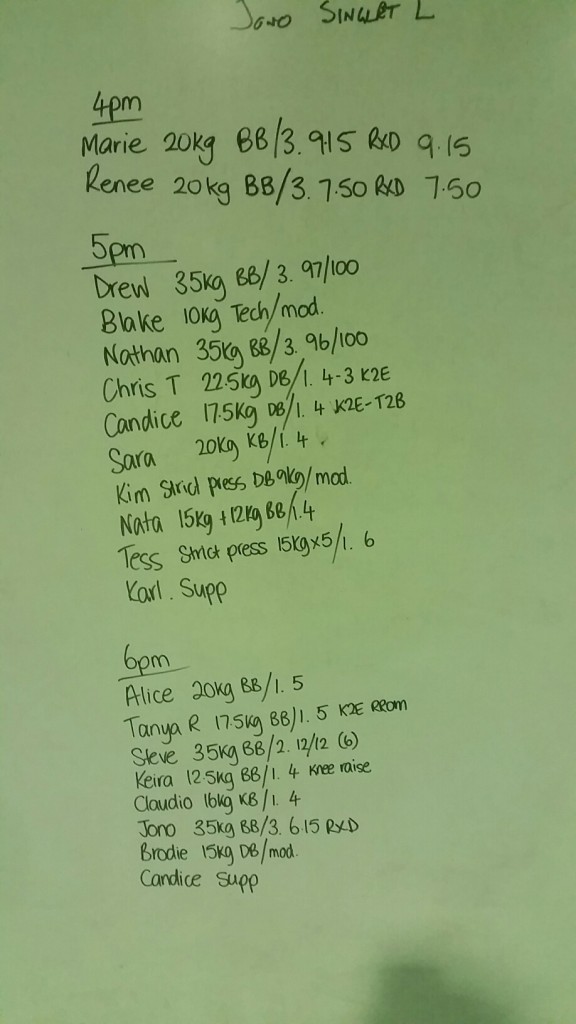 Jono SINGLET L
4pm
Marie 20kg BB/3. 9.15 RXD 9.15
Renee 20kg BB/3. 7.50 RXD 7.50
5pm
Drew 35kg BB/3. 97/100
Blake 10kg Tech/mod.
Nathan 35kg BB/3. 96/100
Chris T 22.5kg DB/1. 4-3 K2E
Candice 17.5kg DB/1. 4 K2E-T2B
Sara 20kg KB/1. 4
Kim Strict press DB 9kg/mod.
Nata 15kg +12kg BB/1.4
Tess Strict press 15kgx5/1. 6
Karl. Supp
6pm
Alice 20kg BB/1. 5
Tanya R 17.5kg BB/1. 5 K2E RROM
Steve 35kg BB/2. 12/12 (6)
Keira 12.5kg BB/1. 4 Knee raise
Claudio 16kg KB/1. 4
Jono 35kg BB/3. 6.15 RXD
Brodie 15kg DB/mod.
Candice Supp